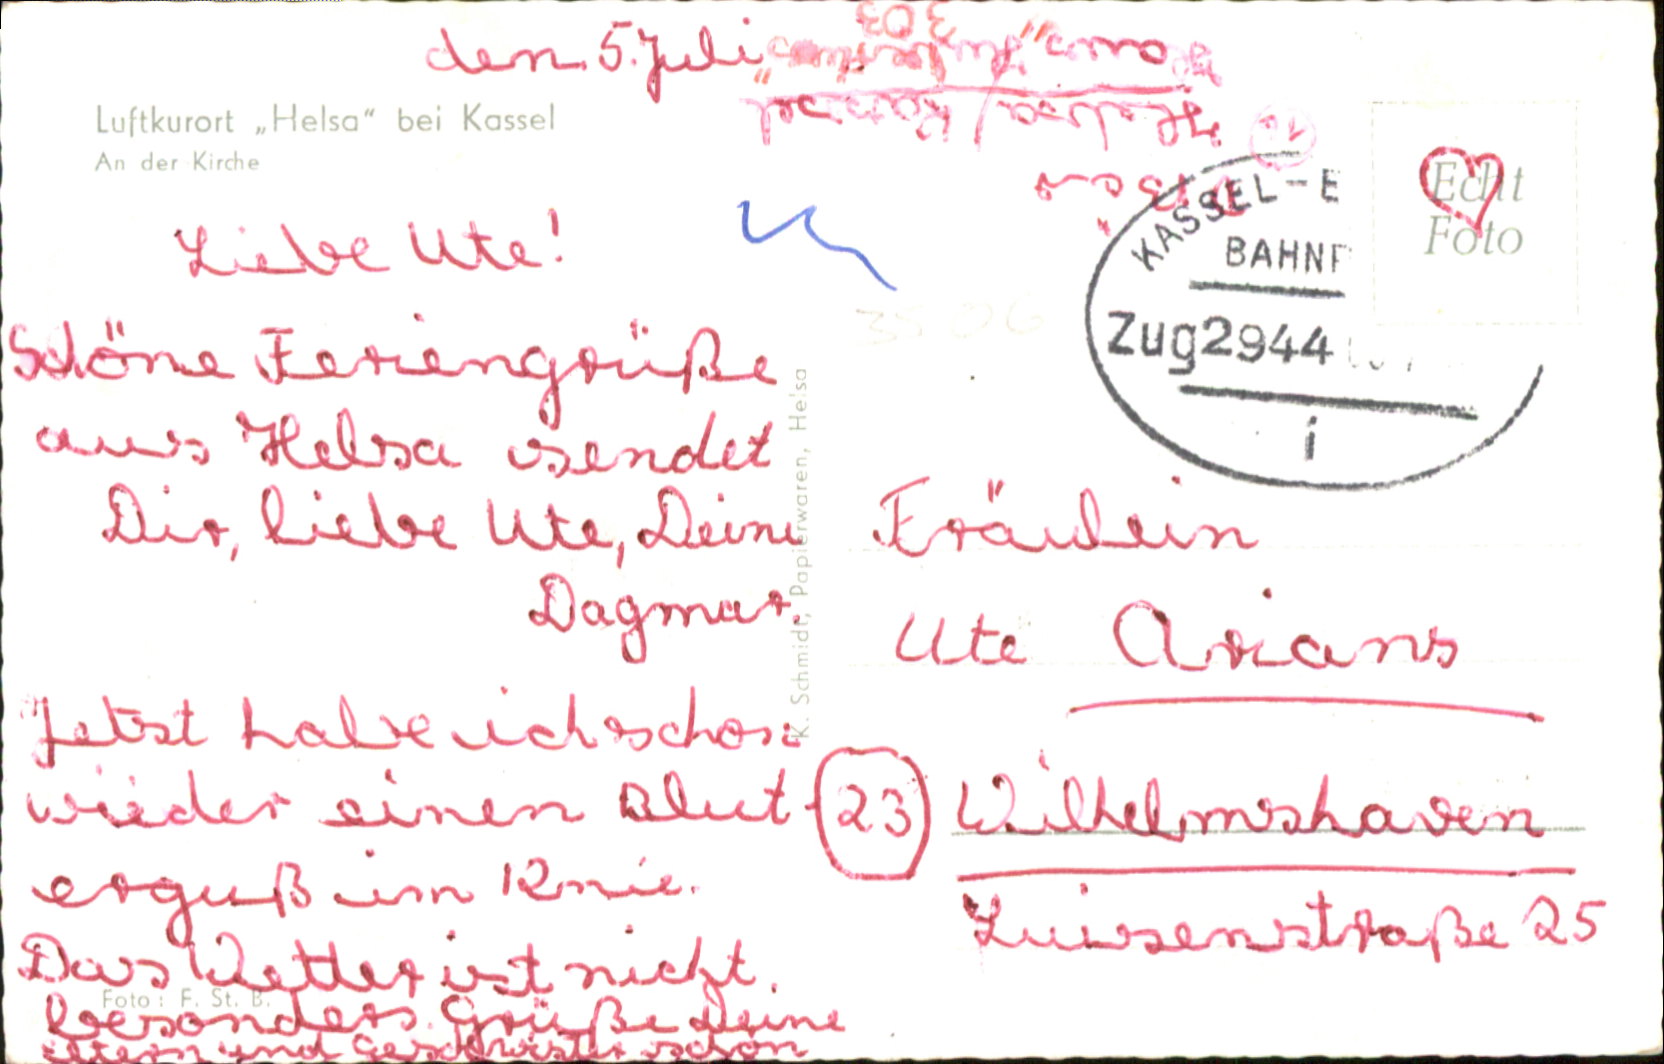 den 5. Juli
Luftkurort „Helsa“ bei Kassel
An der Kirche
Liebe Ute!
Schöne Feriengrüße
aus Helsa sendet
Dir, liebe Ute, Deine
Dagmar.
Jetzt habe ich schon
wieder einen Blut-
erguß im Knie.
Das Wetter ist nicht
besonders. Grüße Deine
Eltern und Geschwister schön
Foto: F. St. B.
K. Schmidt, Papierwaren, Helsa
303
Haus
Helsa/Kassel
10
KASSEL-E
BAHNP
Zug2944
i
Echt
Foto
3506
Fräulein
Ute Arians
23 Wilhelmshaven
Luisenstraße 25